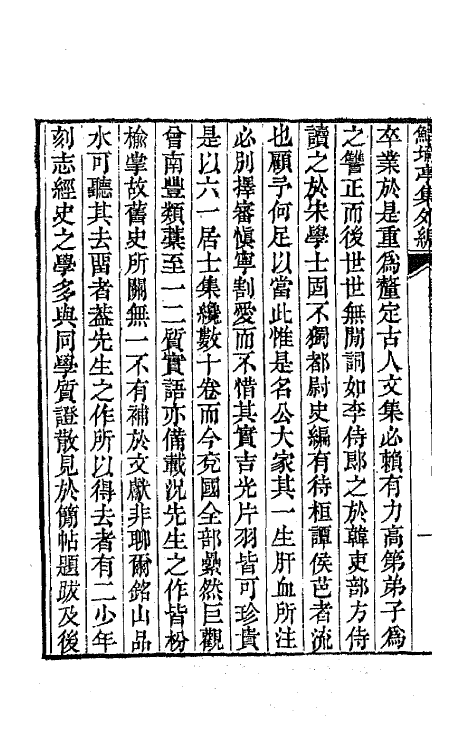 鮚埼亭集外編
卒業於是重爲釐定古人文集必賴有力高第弟子爲
之讐正而後世世無閒詞如李侍郎之於韓吏部方侍
讀之於宋學士固不獨都尉史編有待桓譚侯芭者流
也顧予何足以當此惟是名公大家其一生肝血所注
必別擇審愼寧割愛而不惜其實吉光片羽皆可珍貴
是以六一居士集纔數十卷而今兖國全部纍然巨觀
曾南豐類藁至一二質實語亦備載況先生之作皆枌
楡掌故舊史所關無一不有補於文獻非聊爾銘山品
水可聽其去畱者葢先生之作所以得去者有二少年
刻志經史之學多與同學質證散見於簡帖題跋及後
一